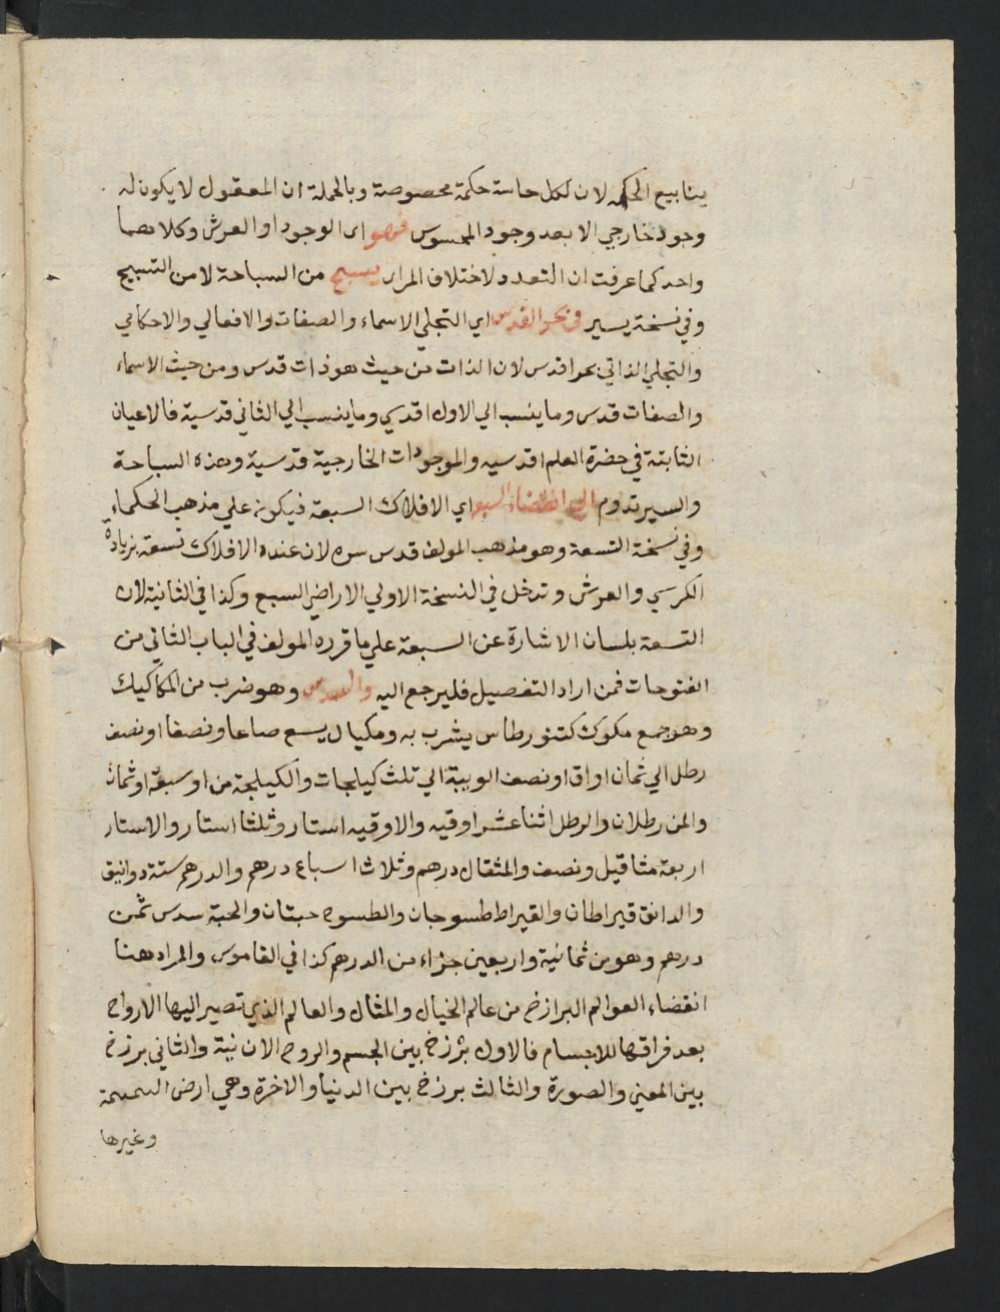 ينابيع الحكمه لان لكل حاسة حكمة مخصوصة وبالجملة ان المعقول لا يكون له
وجود خارجي الا بعد وجود المحسوس فهو اى الوجود او العرش وكلاهما
واحد كما عرفت ان التعدد لاختلاف المراد يسبح من السباحة لا من التسبيح
وفي نسخة يسير في بحر القدس اي التجلي الاسماء والصفات والافعالي والاحكامي
والتجلي الذاتي بحر اقدس لان الذات من حيث هو ذات قدس ومن حيث الاسماء
والصفات قدس وما ينسب الي الاول اقدسي وما ينسب الي الثاني قدسية فالاعيان
الثابتة في حضرة العلم اقدسيه والموجودات الخارجية قدسية وهذه السباحة
والسير تدوم الي انقضاء السبع اي الافلاك السبعة فيكون علي مذهب الحكماء
وفي نسخة التسعة وهو مذهب المولف قدس سره لان عنده الافلاك تسعة بزيادة
الكرسي والعرش وتدخل في النسخة الاولي الاراضي السبع وكذا في الثانية لان
التسعة بلسان الاشارة عن السبعة علي ما قرره المولف في الباب الثاني من
الفتوحات فمن اراد التفصيل فليرجع اليه وهو ضرب من المكاكيك
وهو جمع مكوك كتنور طاس يشرب به ومكيال يسع صاعا ونصفا او نصف
رطل الي ثمان اواق او نصف الويبة الي ثلث كيلجات والكيلجة من او سبعة اوثمان
والمن رطلان والرطل اثنا عشر اوقيه والاوقيه استار وثلثا استار والاستار
اربعة مثاقيل ونصف والمثقال درهم وثلاث اسباع درهم والدرهم ستة دوانيق
والدانق قيراطان والقيراط طسوجان والطسوج حبتان والحبة سدس ثمن
درهم وهو من ثمانية واربعين جزاء من الدرهم كذا في القاموس والمراد هنا
انقضاء العوالم البرازخ من عالم الخيال والمثال والعالم الذي تصير اليها الارواح
بعد فراقها للاجسام فالاول برزخ بين الجسم والروح الانسية والثاني برزخ
بين المعني والصورة والثالث برزخ بين الدنيا والاخرة وهي ارض السمسمة
وغيرها